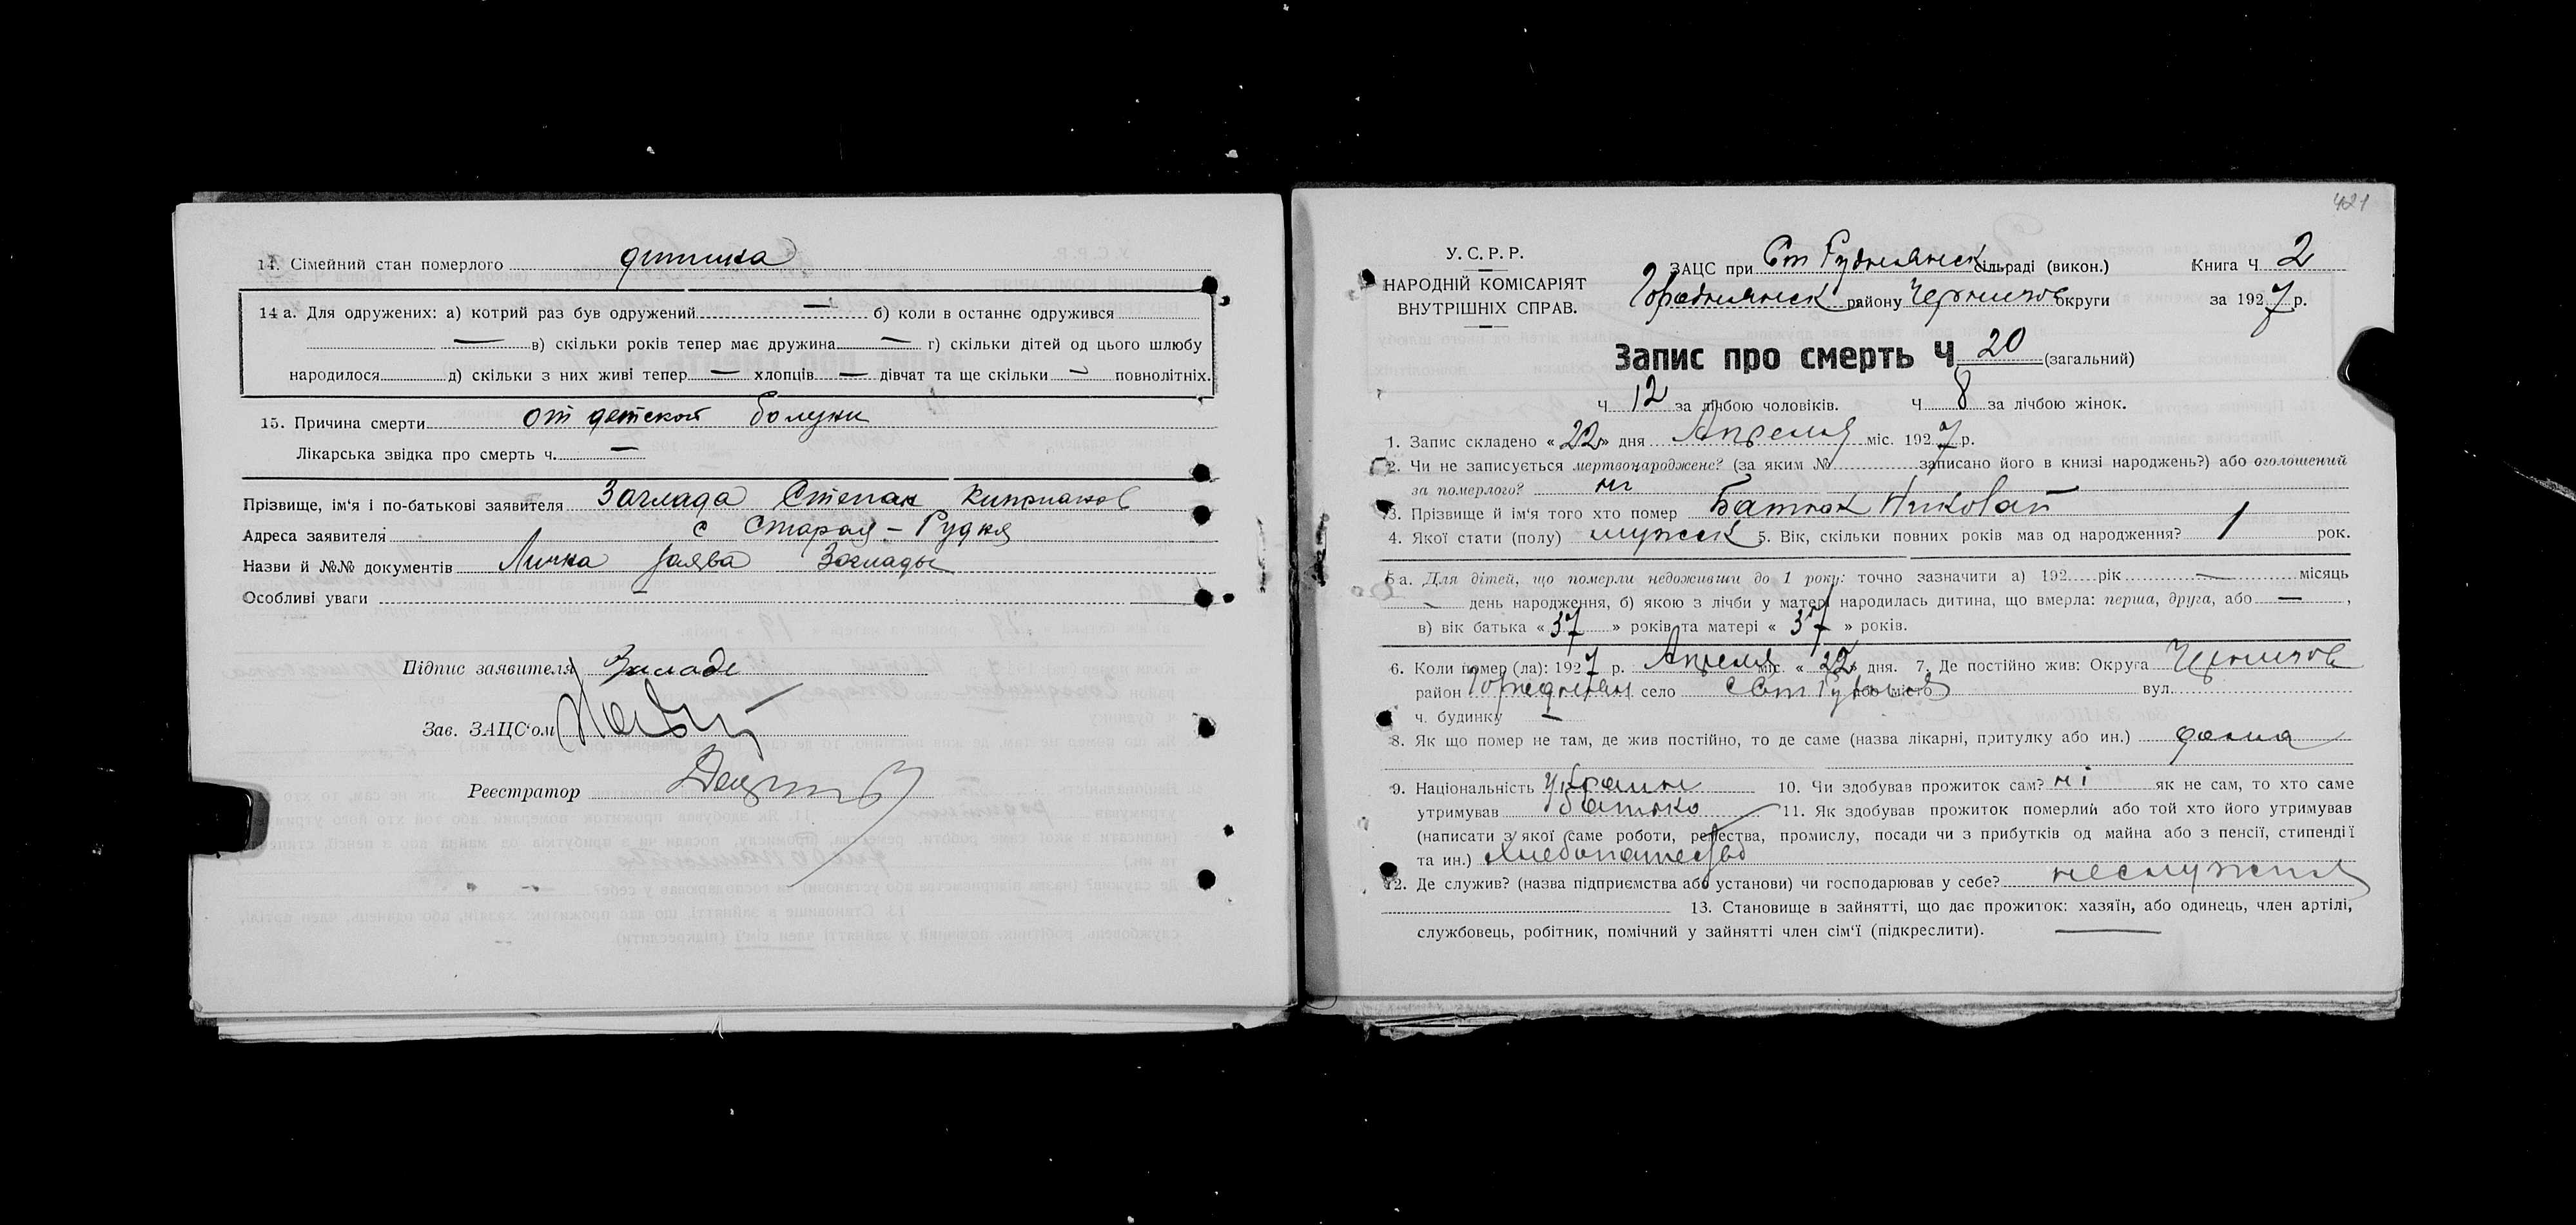 14. Сімейний стан померлого дитина
14 а. Для одружених: а) котрий раз був одружений — б) коли в останнє одружився
— в) скільки років тепер має дружина — г) скільки дітей од цього шлюбу
народилося д) скільки з них живі тепер — хлопців — дівчат та ще скільки — повнолітніх.
15. Причина смерти от детской
Лікарська звідка про смерть ч. —
Прізвище, ім'я і по-батькові заявителя Заглада Степан Киприанов
Адреса заявителя с Старая-Рудня
Назви й №№ документів Лична заява Заглады
Особливі уваги —
Підпис заявителя
Зав. ЗАЦС'ом
Реєстратор
421
У. С. Р. Р.
НАРОДНІЙ КОМІСАРІЯТ
ВНУТРІШНІХ СПРАВ.
ЗАЦС при Ст Руднянск сільраді (викон.) Книга Ч 2
Городнянск району Чернигов округи за 1927 р.
Запис про смерть Ч 20 (загальний)
Ч 12 за лічбою чоловіків. Ч 8 за лічбою жінок.
1. Запис складено «22» дня Апреля міс. 1927 р.
2. Чи не записується мертвонароджене? (за яким № записано його в книзі народжень?) або оголошений
за померлого? ні
3. Прізвище й ім'я того хто помер Батюк Николай
4. Якої стати (полу) мужск 5. Вік, скільки повних років мав од народження? 1 рок.
5 а. Для дітей, що померли недоживши до 1 року: точно зазначити а) 192 рік — місяць
— день народження, б) якою з лічби у матері народилась дитина, що вмерла: перша, друга, або —,
в) вік батька «37» років та матері «37» років.
6. Коли помер (ла): 1927 р. Апреля міс. «22» дня. 7. Де постійно жив: Округа Чернигов
район Городнян село Ст Рудня або місто вул.
ч. будинку —
8. Як що помер не там, де жив постійно, то де саме (назва лікарні, притулку або ин.) дома
9. Національність Украин 10. Чи здобував прожиток сам? ні як не сам, то хто саме
утримував Батько 11. Як здобував прожиток померлий або той хто його утримував
(написати з якої саме роботи, ремества, промислу, посади чи з прибутків од майна або з пенсії, стипендії
та ин.)
12. Де служив? (назва підприємства або установи) чи господарював у себе?
13. Становище в зайнятті, що дає прожиток: хазяїн, або одинець, член артілі,
службовець, робітник, помічний у зайнятті член сім'ї (підкреслити). —